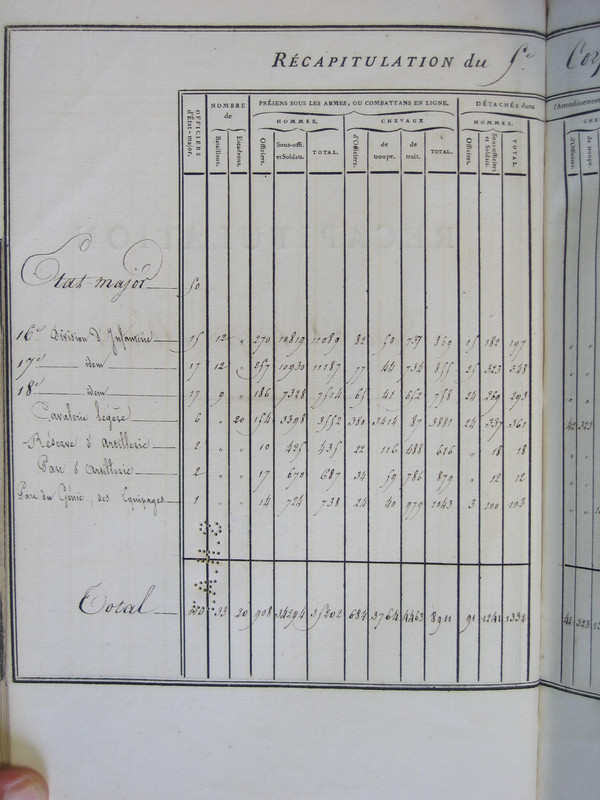 RÉCAPITULATION du 5e Corp
OFFICIERS d'État-major. NOMBRE de PRÉSENS SOUS LES ARMES, OU COMBATTANS EN LIGNE. DÉTACHÉS dans l'Arrondissement
HOMMES. CHEVAUX HOMMES. CHE
Bataillons. Escadrons. Officiers. Sous-offi. et Soldats. TOTAL. d'Officiers. de troupe. de trait. TOTAL. Officiers. Sous-officiers et Soldats. TOTAL. d'Officiers. de troupe.
État major 50
16e Division d'Infanterie 15 12 " 270 10819 11089 82 50 737 869 15 182 197 " "
17e idem 17 12 " 257 10930 11187 77 44 734 855 25 323 348 " "
18e idem 17 9 " 186 7328 7514 65 41 652 758 24 269 293 " "
Cavalerie légère 6 " 20 154 3398 3552 380 3414 87 3881 24 337 361 42 323
Réserve d'artillerie 2 " " 10 425 435 22 116 488 626 " 18 18 " "
Parc d'artillerie 2 " " 17 670 687 34 59 786 879 " 12 12 " "
Parc du Génie, des Equipages 1 " " 14 724 738 24 40 979 1043 3 100 103 " "
Total 33 20 908 34294 35202 684 3764 4463 8911 91 1241 1332 42 323